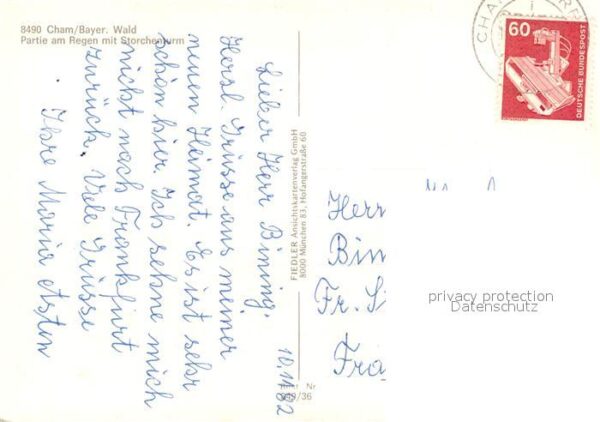 8490 Cham/Bayer. Wald
Partie am Regen mit Storchenturm
10.11.82
Lieber Herr Binnig.
Herzl. Grüsse aus meiner
neuen Heimat. Es ist sehr
schön hier. Ich sehne mich
nicht nach Frankfurt
zurück. Viele Grüsse
Ihre Maria
FIEDLER Ansichtskartenverlag GmbH
8000 München 83, Hofangerstraße 60
Nr
849/36
CHA
60
DEUTSCHE BUNDESPOST
Herr
Bin
Fr.
Fra
privacy protection
Datenschutz